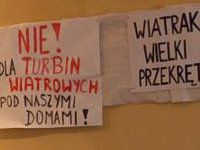 NIE!
DLA TURBIN
WIATROWYCH
POD NASZYMI
DOMAMI!
WIATRAKI
WIELKI
PRZEKRĘT